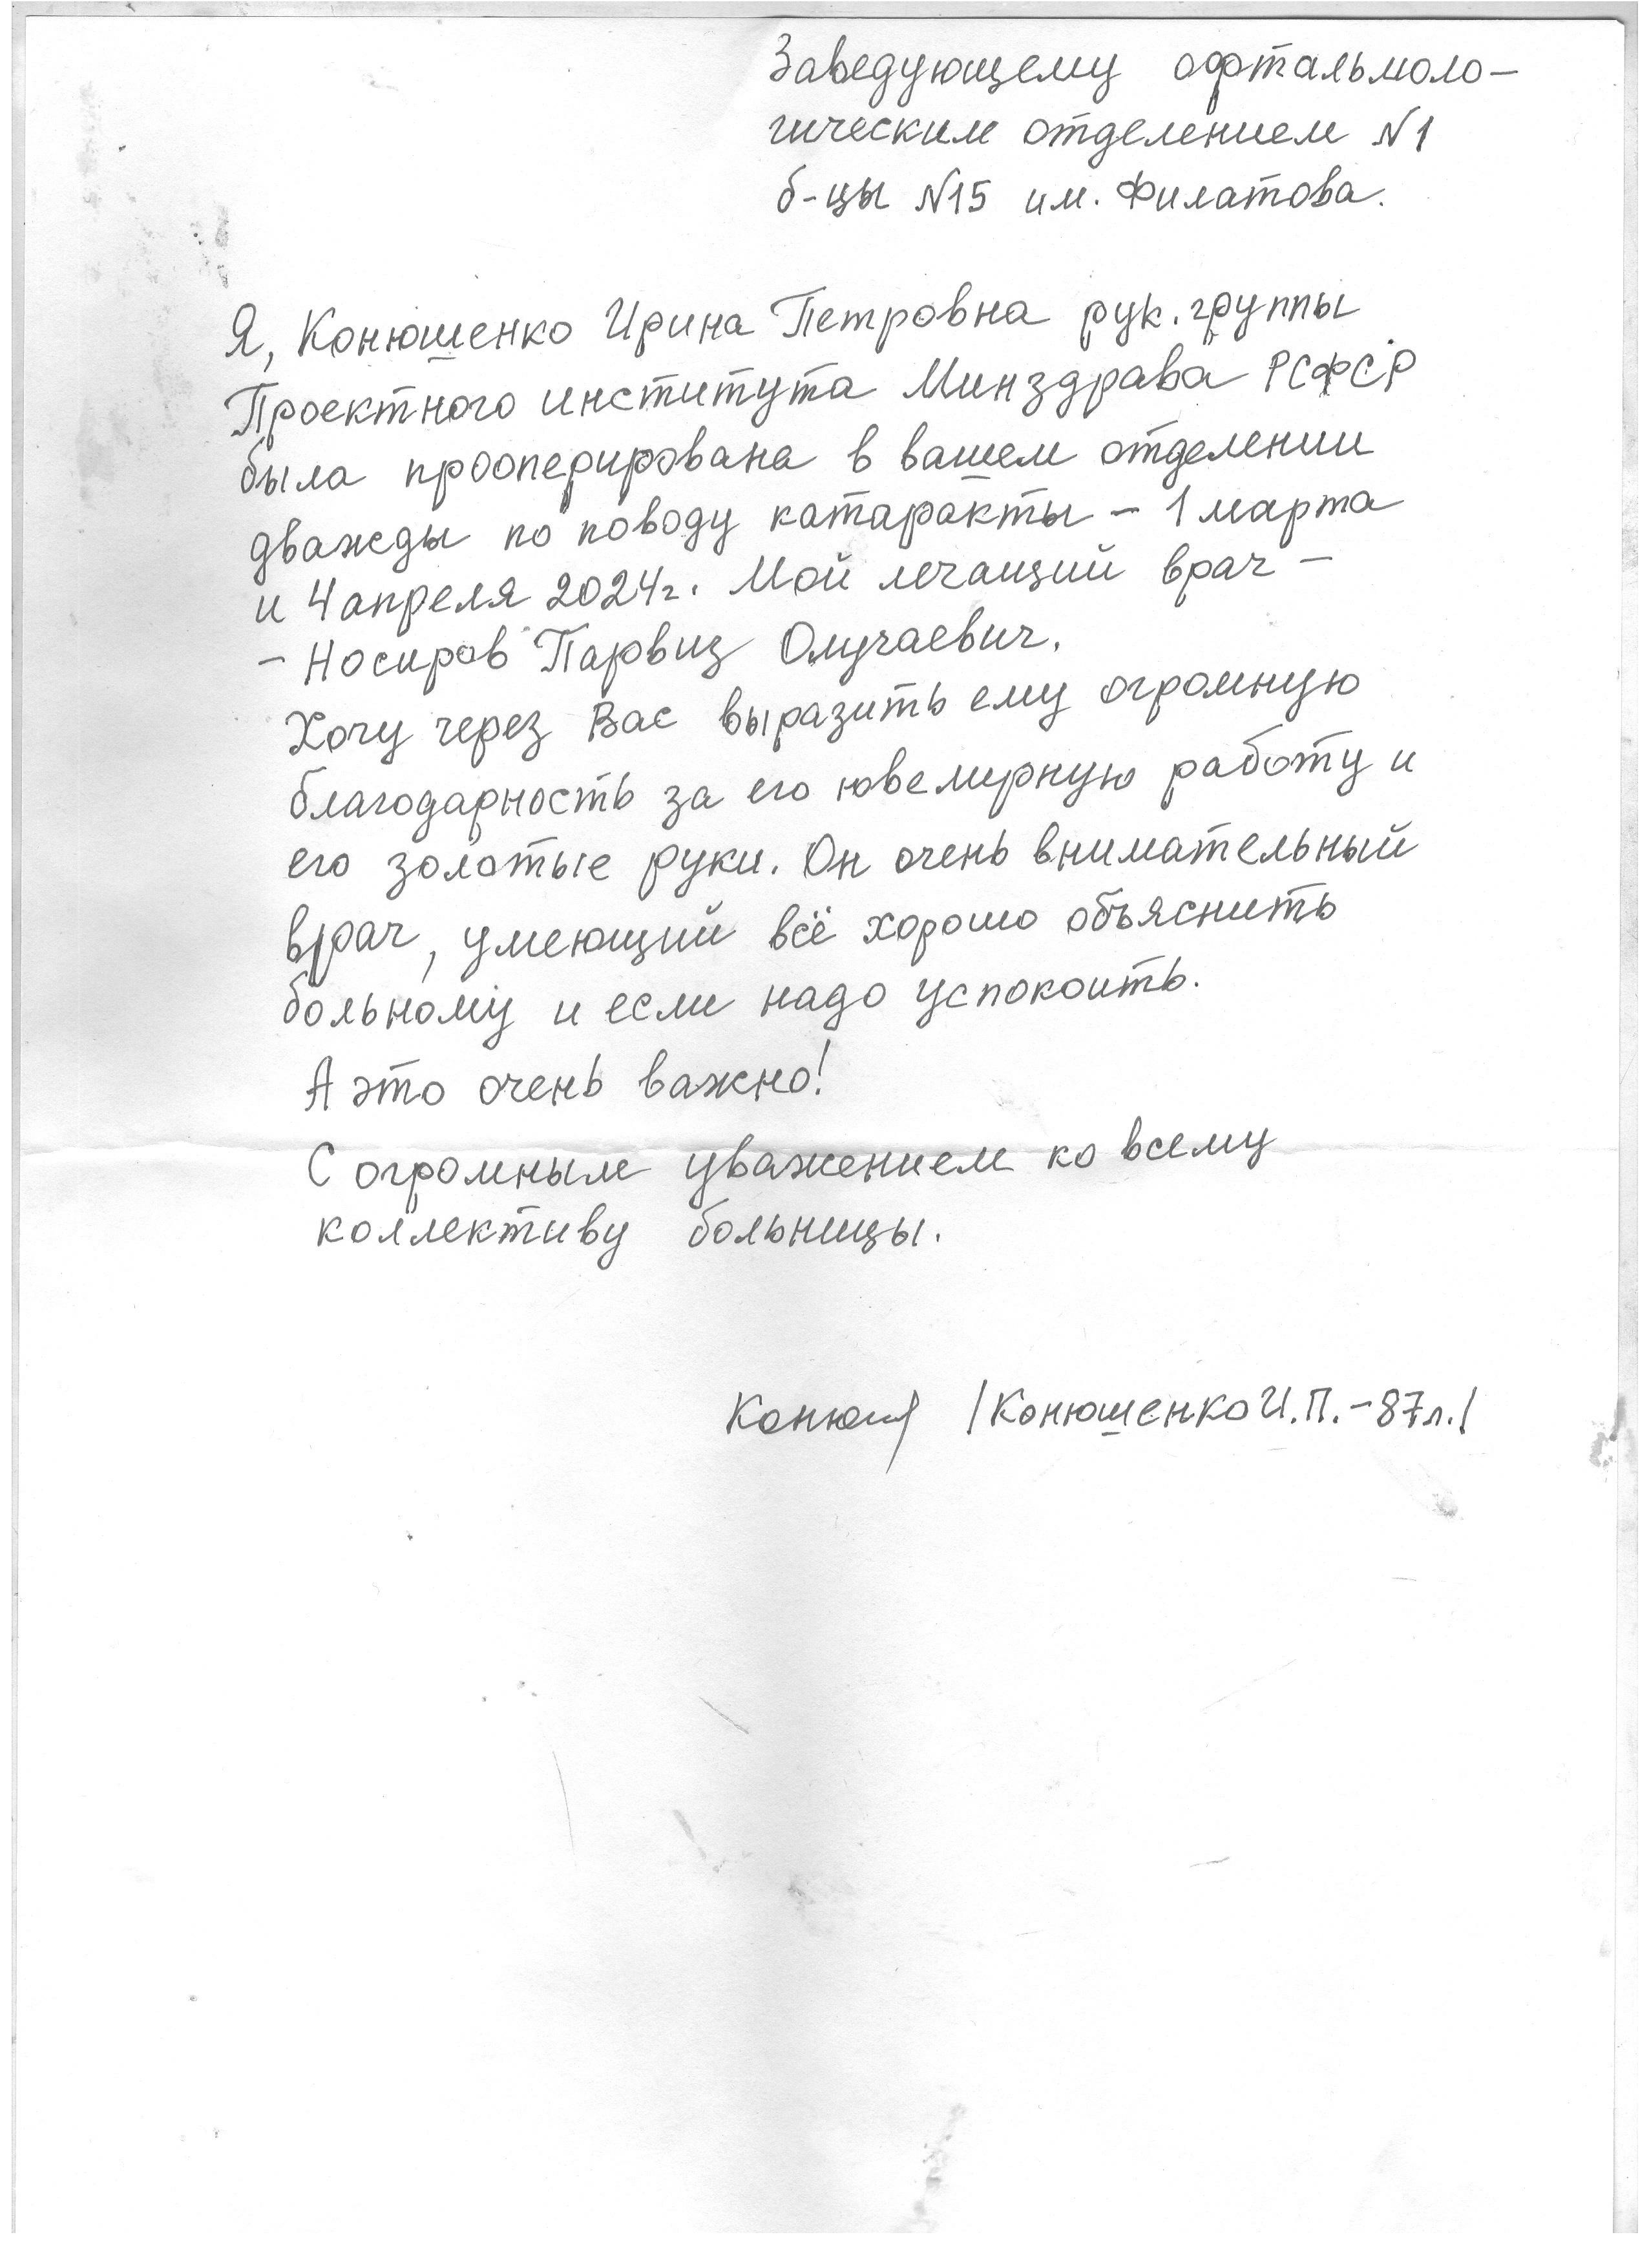 Заведующему офтальмоло-
гическим отделением N1
б-цы N15 им. Филатова.
Я, Конюшенко Ирина Петровна рук. группы
Проектного института Минздрава РСФСР
была прооперирована в вашем отделении
дважды по поводу катаракты - 1 марта
и 4 апреля 2024г. Мой лечащий врач -
- Носиров Парвиз Олучаевич.
Хочу через Вас выразить ему огромную
благодарность за его ювелирную работу и
его золотые руки. Он очень внимательный
врач, умеющий всё хорошо объяснить
больному и если надо успокоить.
А это очень важно!
С огромным уважением ко всему
коллективу больницы.
Конюш /Конюшенко И.П. - 87л./